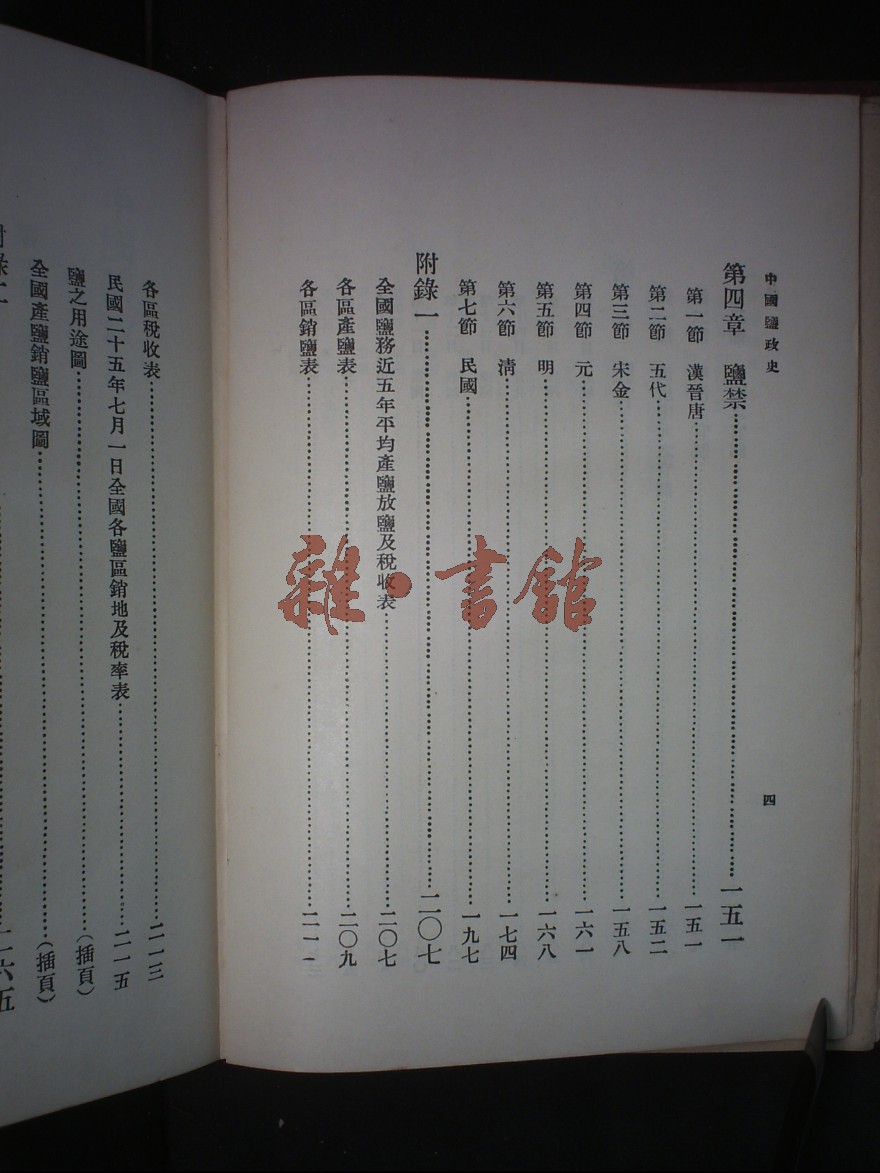 中國鹽政史
四
第四章 鹽禁……一五一
第一節 漢晉唐……一五一
第二節 五代……一五二
第三節 宋金……一五八
第四節 元……一六一
第五節 明……一六八
第六節 清……一七四
第七節 民國……一九七
附錄一……二〇七
全國鹽務近五年平均產鹽放鹽及稅收表……二〇七
各區產鹽表……二〇九
各區銷鹽表……二一一
各區稅收表……二一三
民國二十五年七月一日全國各鹽區銷地及稅率表……二一五
鹽之用途圖……(插頁)
全國產鹽銷鹽區域圖……(插頁)
附錄二……二六五
雜·書館